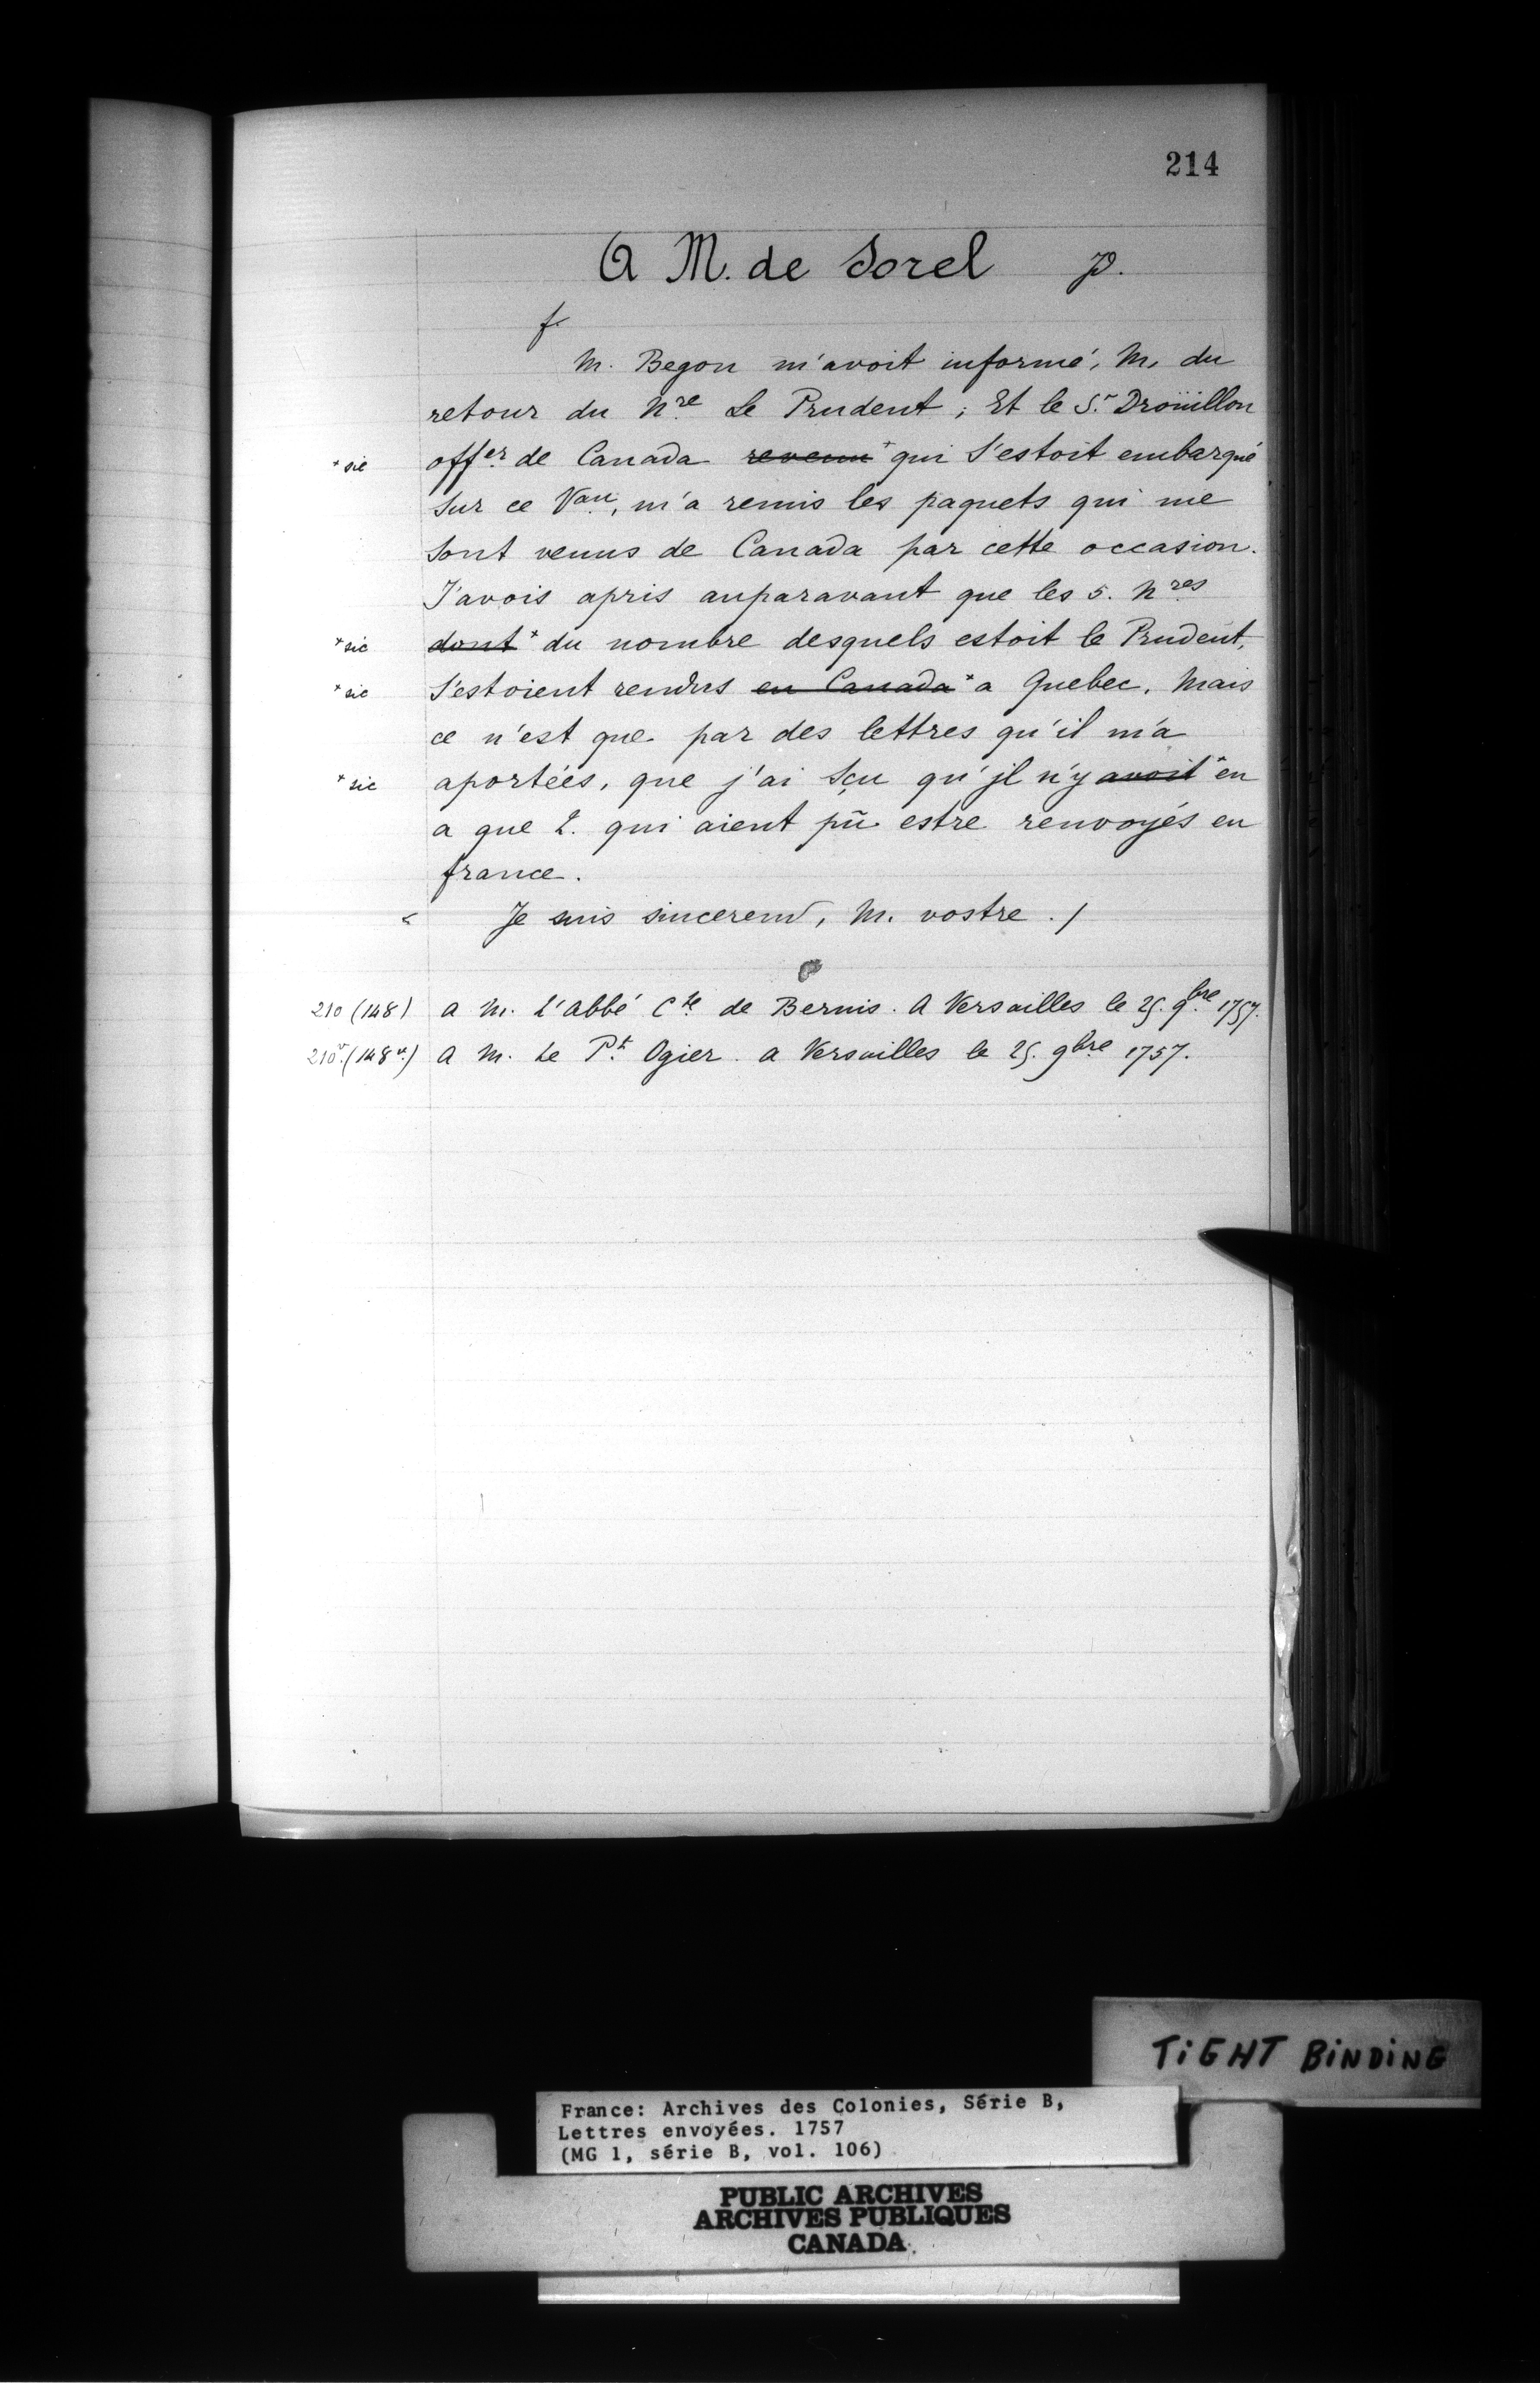 214
A M. de Sorel p.
f
M. Begon m'avoit informé, M. du
retour du Nre Le Prudent; Et le Sr. Droüillon
*sic offer de Canada revenu* qui S'estoit embarqué
Sur ce Vau, m'a remis les paquets qui me
Sont venus de Canada par cette occasion.
J'avois apris auparavant que les 5. Nres
*sic dont* du nombre desquels estoit le Prudent,
*sic S'estoient rendus en Canada* a Quebec, Mais
ce n'est que par des lettres qu'il m'a
*sic aportées, que j'ai Sçu qu'jl n'y avoit* en
a que 2. qui aient pû estre renvoyés en
france.
Je suis sincerem, M. vostre ./
210 (148) a M. L'abbé Cte de Bernis. A Versailles le 25. 9bre 1757.
210v. (148v.) A M. Le Pt Ogier. a Versailles le 25. 9bre 1757.
TiGHT BiNDiNG
France: Archives des Colonies, Série B,
Lettres envoyées. 1757
(MG 1, série B, vol. 106)
PUBLIC ARCHIVES
ARCHIVES PUBLIQUES
CANADA